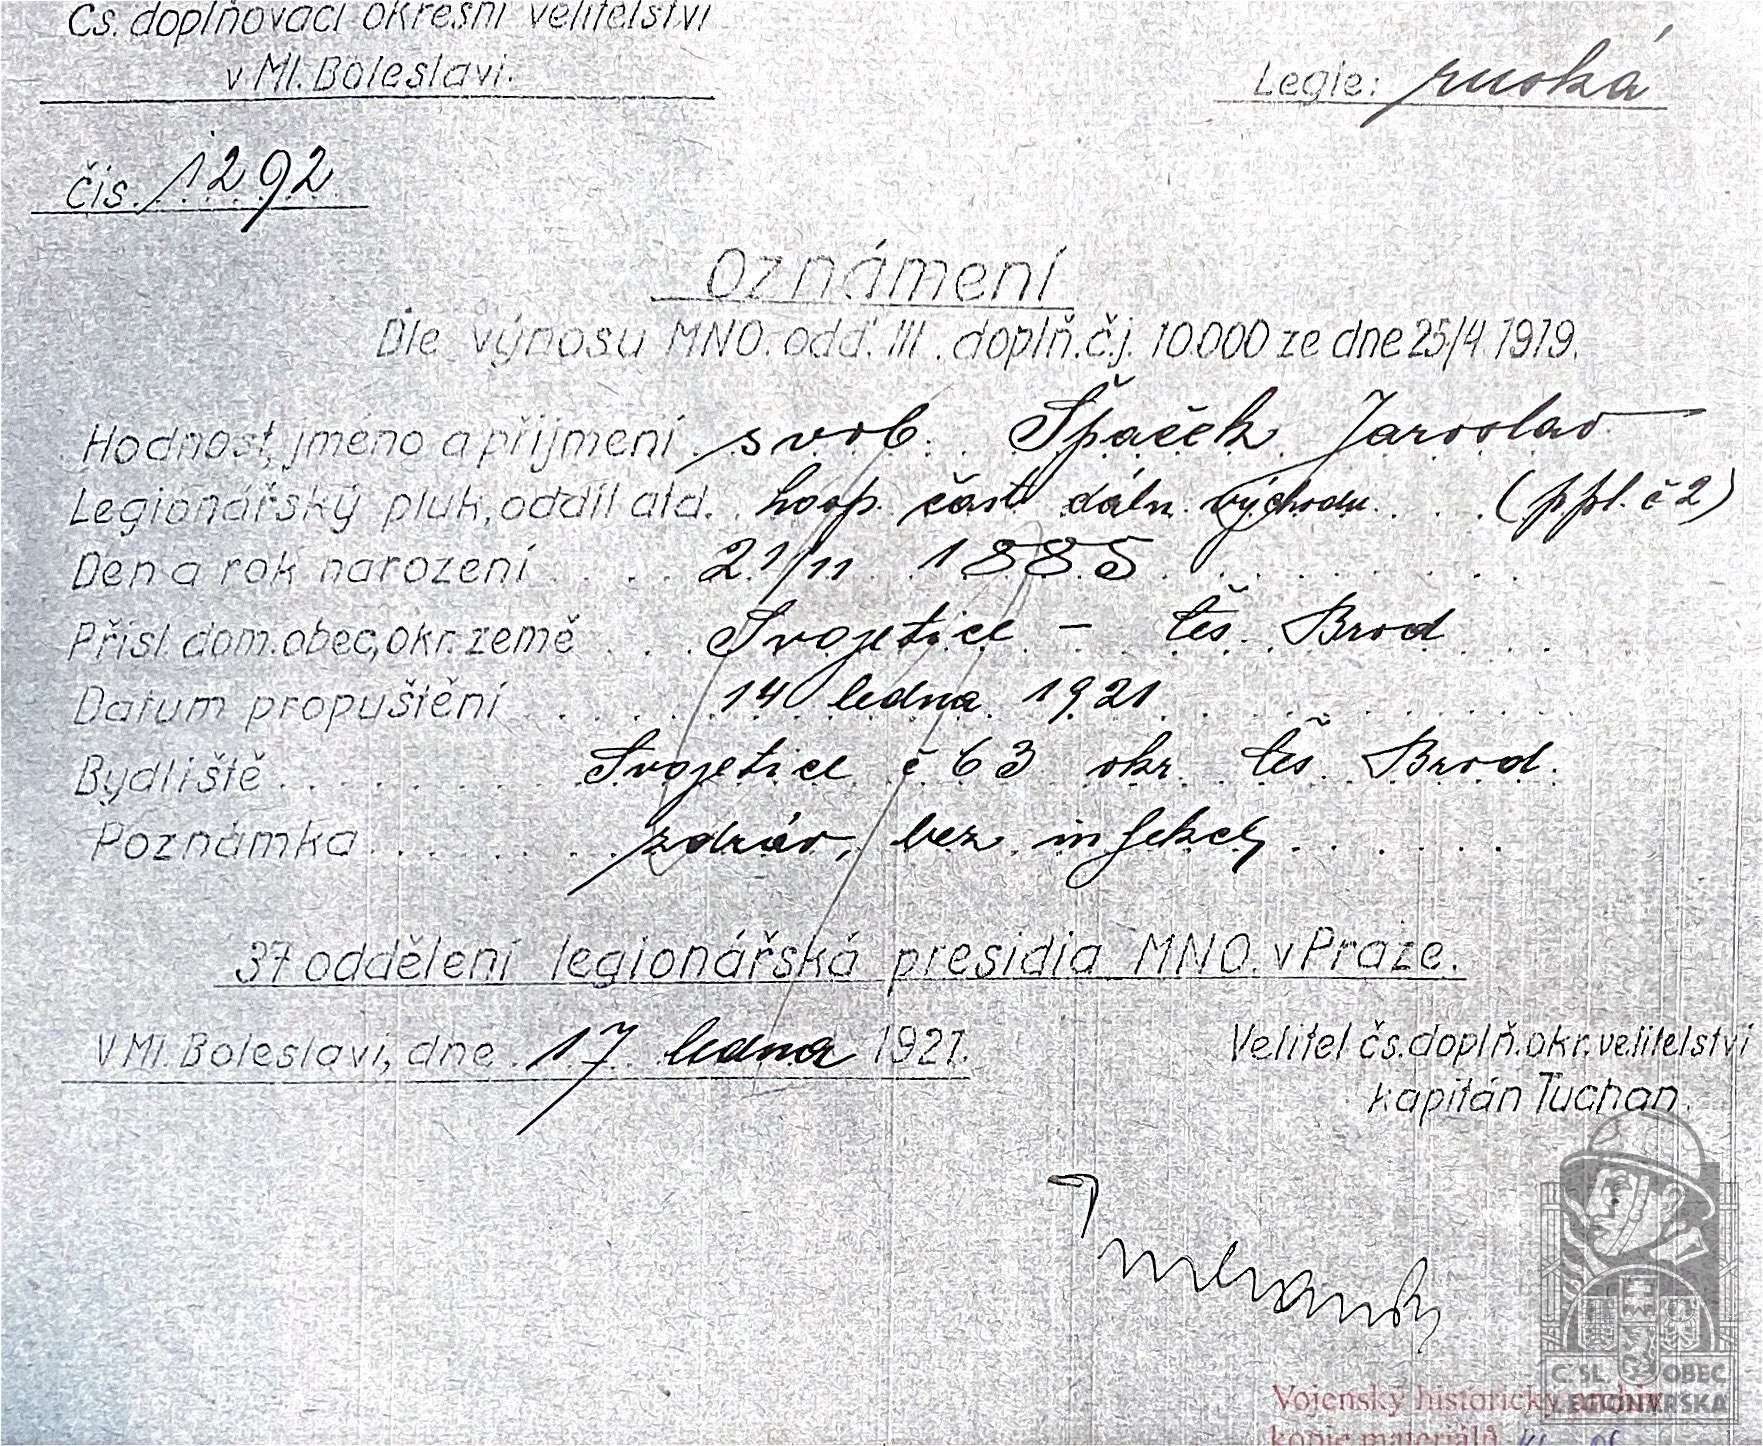 Čs. doplňovací okresní velitelství
v Ml. Boleslavi.
Legie: ruská
čís. 1292
Oznámení
Dle výnosu MNO. odd. III. doplň. č.j. 10.000 ze dne 25/4. 1919.
Hodnost, jméno a příjmení svob. Špaček Jaroslav
Legionářský pluk, oddíl atd. hosp. část dáln. východu (ppl. č 2)
Den a rok narození 21/11 1885
Přísl. dom. obec, okr. země Svojetice - Čes. Brod
Datum propuštění 14 ledna 1921
Bydliště Svojetice č 63 okr. Čes. Brod.
Poznámka zdráv, bez infekcy
37 oddělení legionářská presidia MNO. v Praze.
V Ml. Boleslavi, dne 17 ledna 1921.
Velitel čs. doplň. okr. velitelství
kapitán Tuchan.
Č. SL. OBEC
LEGIONÁŘSKÁ
Vojenský historický archiv
kopie materiálů